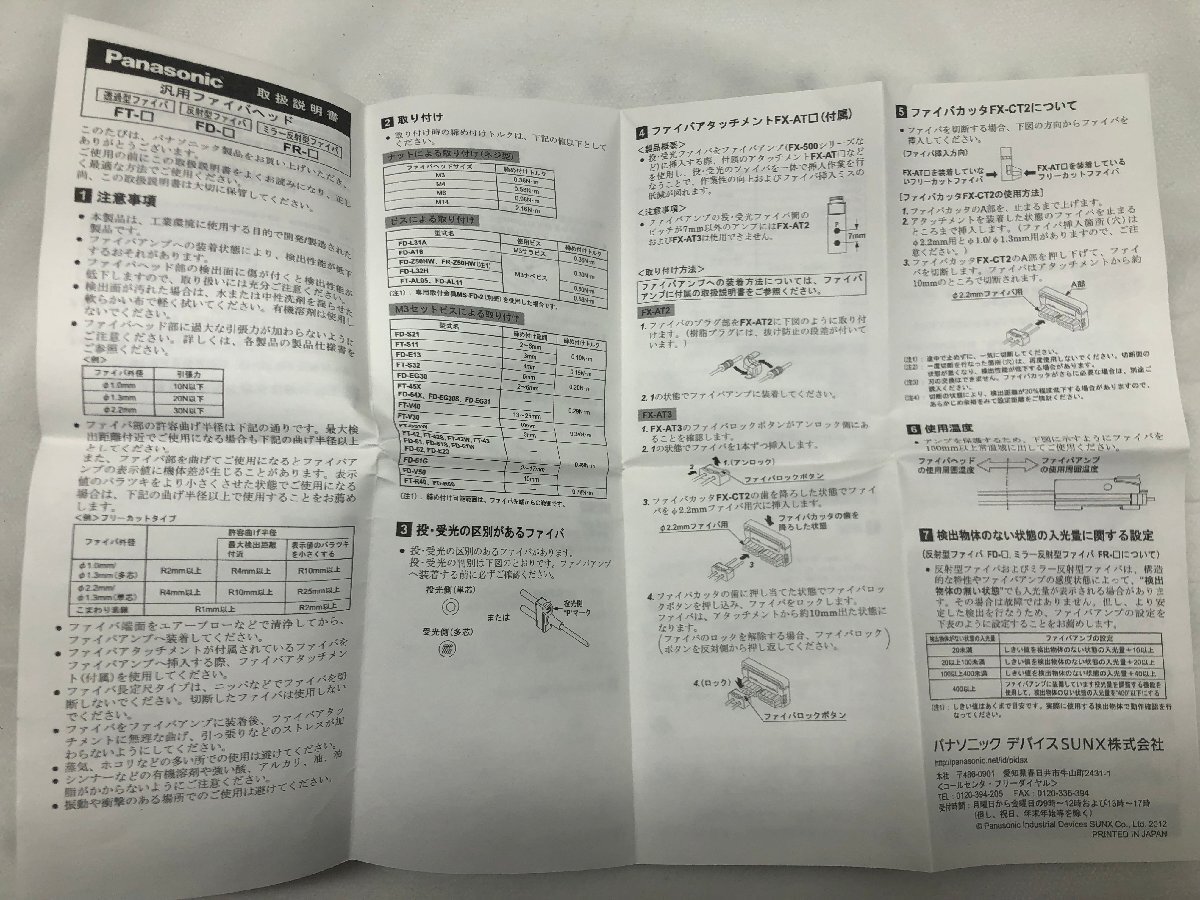 Panasonic 取扱説明書
汎用ファイバヘッド
透過型ファイバ 反射型ファイバ ミラー反射型ファイバ
FT-□ FD-□ FR-□
このたびは、パナソニック製品をお買い上げいただき、
ありがとうございます。
ご使用の前にこの取扱説明書をよくお読みになり、正し
く最適な方法でご使用ください。
尚、この取扱説明書は大切に保管してください。
1 注意事項
● 本製品は、工業環境に使用する目的で開発/製造された
製品です。
● ファイバアンプへの装着状態により、検出性能が低下
するおそれがあります。
● ファイバヘッド部の検出面に傷が付くと検出性能が
低下しますので、取り扱いには充分ご注意ください。
● 検出面が汚れた場合は、水または中性洗剤を浸した
軟らかい布で軽く拭いてください。有機溶剤は使用し
ないでください。
● ファイバヘッド部に過大な引張力が加わらないように
ご注意ください。詳しくは、各製品の製品仕様書を
ご参照ください。
<例>
ファイバ外径 引張力
φ1.0mm 10N以下
φ1.3mm 20N以下
φ2.2mm 30N以下
● ファイバ部の許容曲げ半径は下記の通りです。最大検
出距離付近でご使用になる場合も下記の曲げ半径以上
としてください。
また、ファイバ部を曲げてご使用になるとファイバア
ンプの表示値に機体差が生じることがあります。表示
値のバラツキをより小さくさせた状態でご使用になる
場合は、下記の曲げ半径以上で使用することをお薦め
します。
<例>フリーカットタイプ
ファイバ外径 許容曲げ半径
最大検出距離付近 表示値のバラツキを小さくする
φ1.0mm/φ1.3mm(多芯) R2mm以上 R4mm以上 R10mm以上
φ2.2mm/φ1.3mm(単芯) R4mm以上 R10mm以上 R25mm以上
こまわり素線 R1mm以上 R2mm以上
● ファイバ端面をエアーブローなどで清浄してから、
ファイバアンプへ装着してください。
● ファイバアタッチメントが付属されているファイバを
ファイバアンプへ挿入する際、ファイバアタッチメン
ト(付属)を使用してください。
● ファイバ長定尺タイプは、ニッパなどでファイバを切
断しないでください。切断したファイバは使用しない
でください。
● ファイバをファイバアンプに装着後、ファイバアタッ
チメントに無理な曲げ、引っ張りなどのストレスが加
わらないようにしてください。
● 蒸気、ホコリなどの多い所での使用は避けてください。
● シンナーなどの有機溶剤や強い酸、アルカリ、油、油
脂がかからないようにご注意ください。
● 振動や衝撃のある場所でのご使用は避けてください。
2 取り付け
● 取り付け時の締め付けトルクは、下記の値以下として
ください。
ナットによる取り付け(ネジ型)
ファイバヘッドサイズ 締め付けトルク
M3 0.36N·m
M4 0.58N·m
M6 0.98N·m
M14 2.16N·m
ビスによる取り付け
型式名 締め付けトルク
FD-L31A
FD-A16 M3サラビス 0.30N·m
FD-Z50HW、FR-Z50HW(注1)
FD-L32H M3ナベビス
FT-AL05、FD-AL11
M3セットビスによる取り付け
型式名 締め付け範囲 締め付けトルク
FD-S21 2~8mm
FT-S11
FD-E13 3mm 0.10N·m
FT-S32
FD-EG30
FT-45X
FD-64X、FD-EG30S、FD-EG31
FT-V40
FT-V30
FD-61G
FD-V50
(注1) : 締め付け可能範囲は、ファイバ先端からの距離です。
3 投・受光の区別があるファイバ
● 投・受光の区別のあるファイバがあります。
投・受光の判別は下図のとおりです。ファイバアンプ
へ装着する前に必ずご確認ください。
投光側(単芯)
または
受光側(多芯)
投光側
"P"マーク
4 ファイバアタッチメントFX-AT□(付属)
<製品概要>
● 投・受光ファイバをファイバアンプ(FX-500シリーズな
ど)に挿入する際、付属のアタッチメントFX-AT□など
を使用し、投・受光のファイバを一体で挿入作業を行
なうことで、作業性の向上およびファイバ挿入ミスの
低減が図れます。
<注意事項>
● ファイバアンプの投・受光ファイバ間の
ピッチが7mm以外のアンプにはFX-AT2
およびFX-AT3は使用できません。
7mm
<取り付け方法>
ファイバアンプへの装着方法については、ファイバ
アンプに付属の取扱説明書をご参照ください。
FX-AT2
1. ファイバのプラグ部をFX-AT2に下図のように取り付
けます。(樹脂プラグには、抜け防止の段差が付いて
います。)
2. 1の状態でファイバアンプに装着してください。
FX-AT3
1. FX-AT3のファイバロックボタンがアンロック側にあ
ることを確認します。
2. 1の状態でファイバを1本ずつ挿入します。
2
1.(アンロック)
ファイバロックボタン
3. ファイバカッタFX-CT2の歯を降ろした状態でファイ
バをφ2.2mmファイバ用穴に挿入します。
φ2.2mmファイバ用
ファイバカッタの歯を
降ろした状態
3
4. ファイバカッタの歯に押し当てた状態でファイバロッ
クボタンを押し込み、ファイバをロックします。
ファイバは、アタッチメントから約10mm出た状態に
なります。
(ファイバのロックを解除する場合、ファイバロック
ボタンを反対側から押し返してください。)
4.(ロック)
ファイバロックボタン
5 ファイバカッタFX-CT2について
● ファイバを切断する場合、下図の方向からファイバを
挿入してください。
(ファイバ挿入方向)
FX-AT□を装着していな
いフリーカットファイバ
FX-AT□を装着している
フリーカットファイバ
[ファイバカッタFX-CT2の使用方法]
1. ファイバカッタのA部を、止まるまで上げます。
2. アタッチメントを装着した状態のファイバを止まる
ところまで挿入します。(ファイバ挿入箇所(穴)は
φ2.2mm用とφ1.0/φ1.3mm用がありますので、ご注
意ください。)
3. ファイバカッタFX-CT2のA部を押し下げて、ファイ
バを切断します。ファイバはアタッチメントから約
10mmのところで切断されます。
φ2.2mmファイバ用
A部
(注1) : 途中で止めずに、一気に切断してください。
(注2) : 一度切断を行なった箇所(穴)は、再度使用しないでください。切断面の
状態が悪くなり、検出性能が低下する場合があります。
(注3) : 刃の交換はできません。ファイバカッタがさらに必要な場合は、別途ご
購入ください。
(注4) : 切断の状態により、検出距離が20%程度低下する場合がありますので、
あらかじめ余裕をみて設定距離をご検討ください。
6 使用温度
● アンプを保護するため、下図に示すようにファイバを
100mm以上常温域に出してご使用ください。
ファイバヘッド
の使用周囲温度
ファイバアンプ
の使用周囲温度
7 検出物体のない状態の入光量に関する設定
(反射型ファイバ FD-□、ミラー反射型ファイバ FR-□について)
● 反射型ファイバおよびミラー反射型ファイバは、構造
的な特性やファイバアンプの感度状態によって、"検出
物体の無い状態"でも入光量が表示される場合がありま
す。その場合は故障ではありません。但し、より安
定した検出を行なうため、ファイバアンプの設定を
下表のように設定することをお薦めします。
検出物体がない状態の入光量 ファイバアンプの設定
20未満 しきい値を検出物体のない状態の入光量+10以上
20以上100未満 しきい値を検出物体のない状態の入光量+20以上
100以上400未満 しきい値を検出物体のない状態の入光量+40以上
400以上 ファイバアンプに装着しています投光量を調整する機能を
使用して、検出物体のない状態の入光量を"400"以下にする
(注1) : しきい値はあくまで目安です。実際に使用する検出物体で動作確認を行
なってください。
パナソニック デバイスSUNX株式会社
http://panasonic.net/id/pidsx
本社 〒486-0901 愛知県春日井市牛山町2431-1
<コールセンタ・フリーダイヤル>
TEL : 0120-394-205 FAX : 0120-336-394
受付時間 : 月曜日から金曜日の9時~12時および13時~17時
(但し、祝日、年末年始等を除く)
© Panasonic Industrial Devices SUNX Co., Ltd. 2012
PRINTED IN JAPAN